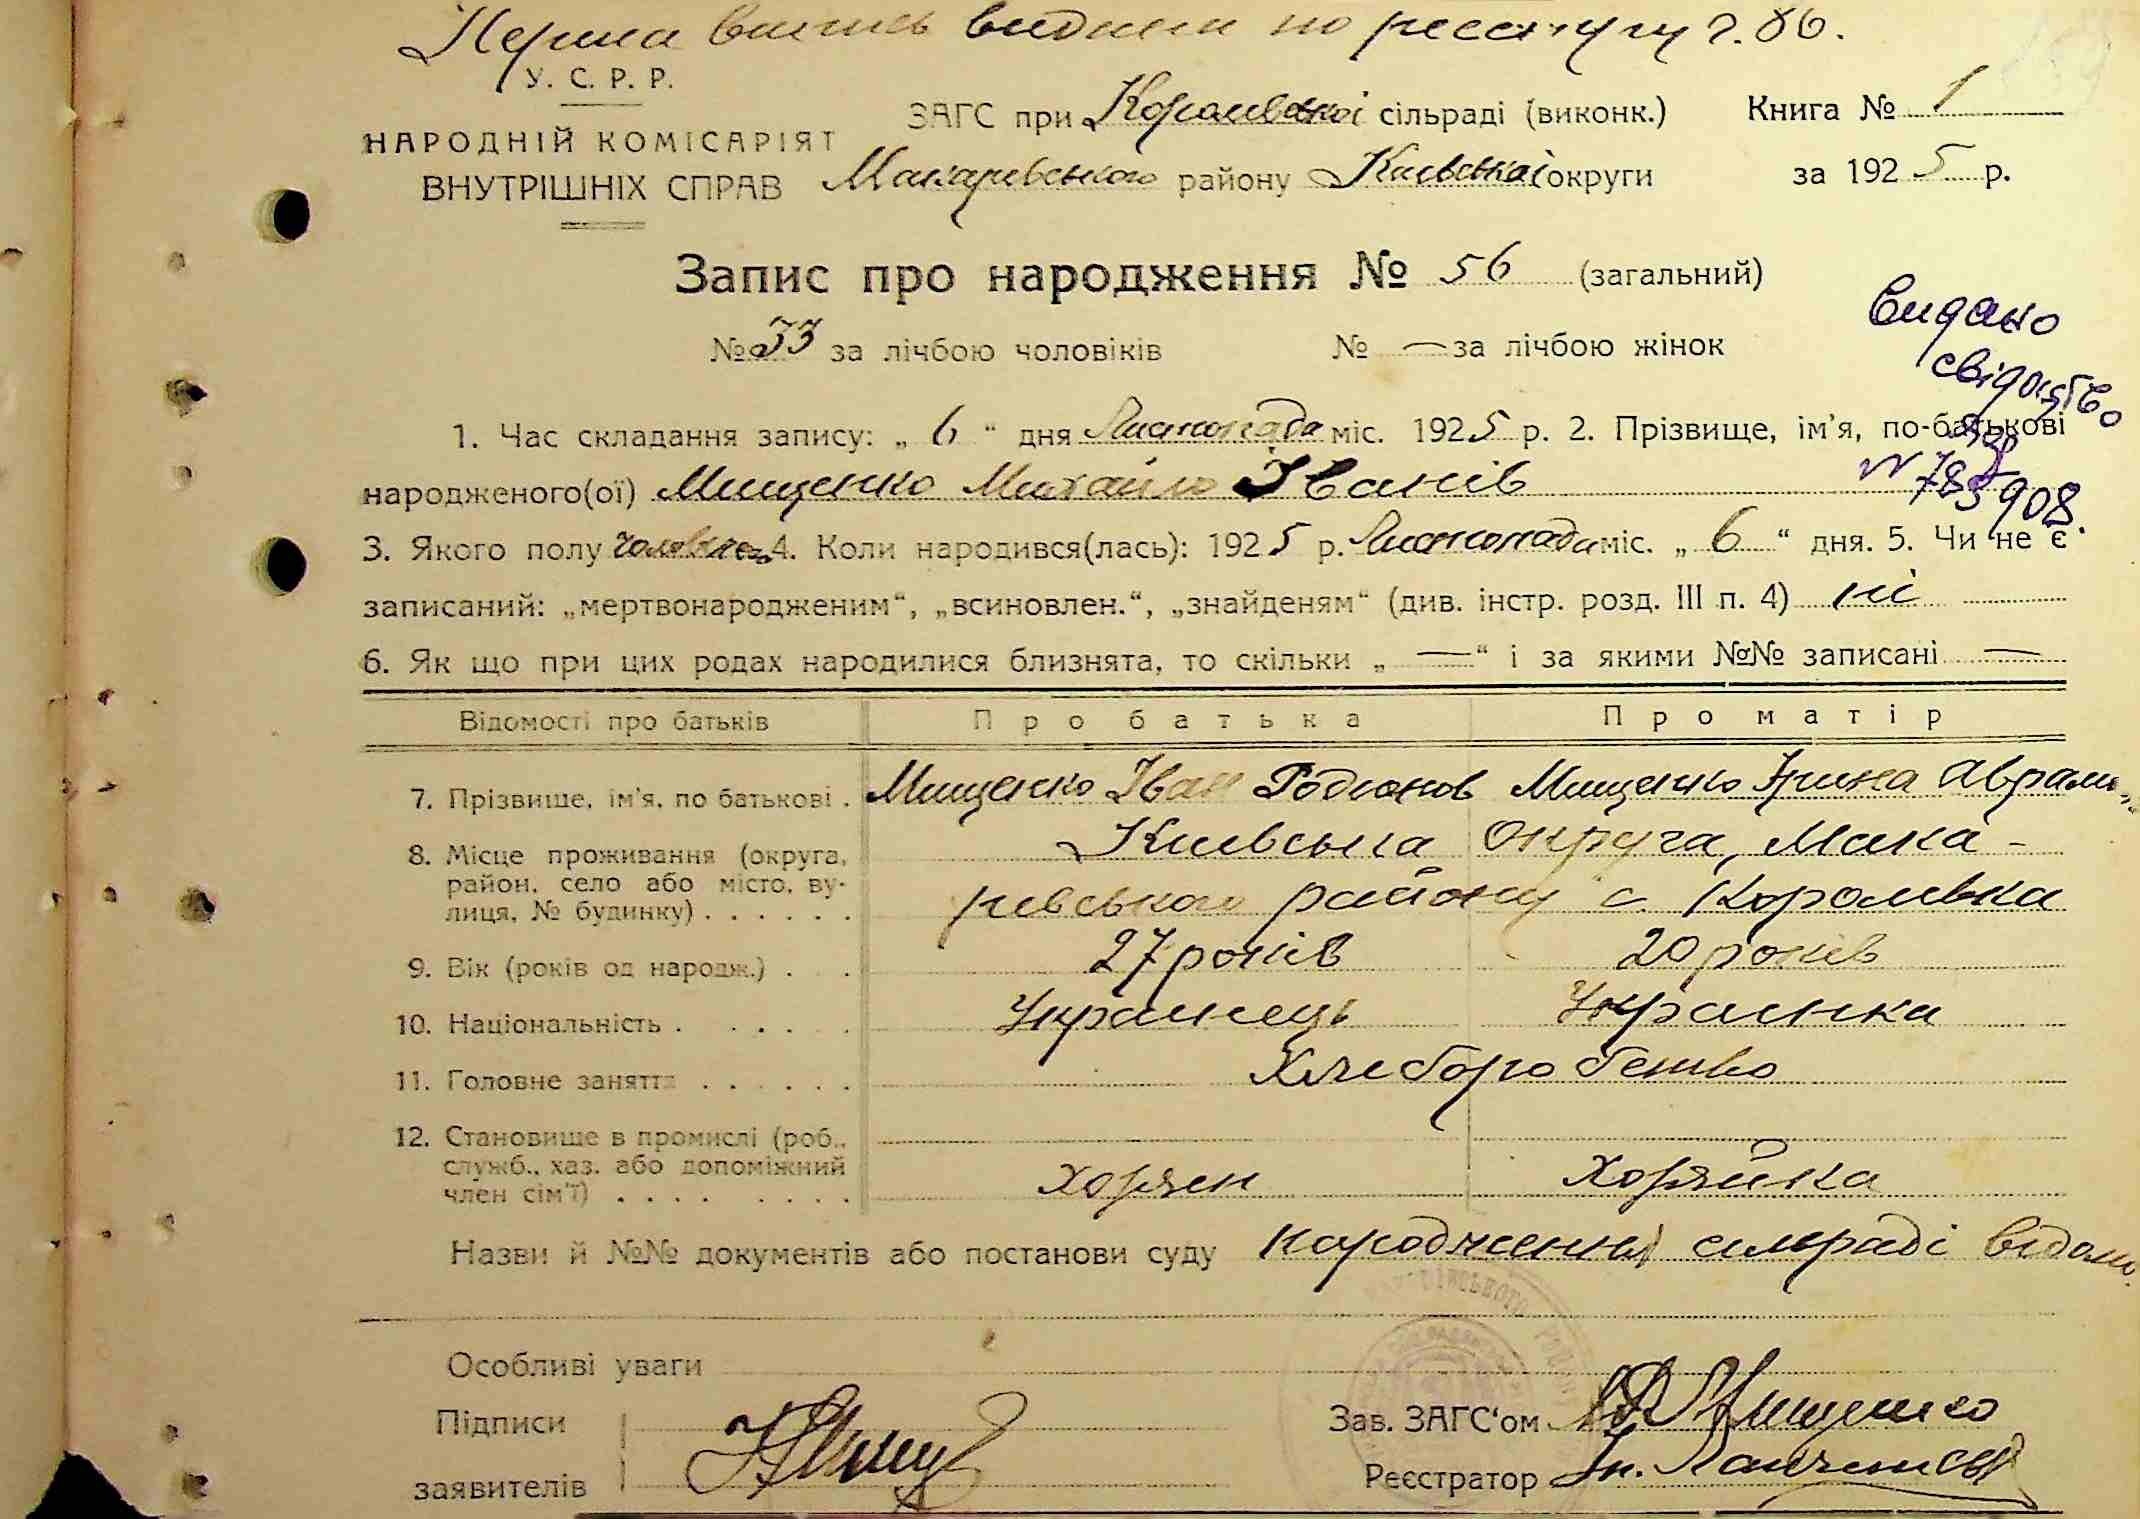 Перша випись видана по реєстру г. 86.
У. С. Р. Р.
НАРОДНІЙ КОМІСАРІЯТ
ВНУТРІШНІХ СПРАВ
ЗАГС при Королівськоі сільраді (виконк.) Книга № 1
Макарівського району Київськоі округи за 1925 р.
Запис про народження № 56 (загальний)
№ 33 за лічбою чоловіків № — за лічбою жінок
Видано
свідоцтво
№ 783908.
1. Час складання запису: „ 6 “ дня Листопада міс. 1925 р. 2. Прізвище, ім'я, по-батькові
народженого(ої) Мищенко Михайло Іванів
3. Якого полу чоловіч. 4. Коли народився(лась): 1925 р. Листопада міс. „ 6 “ дня. 5. Чи не є
записаний: „мертвонародженим“, „всиновлен.“, „знайденям“ (див. інстр. розд. III п. 4) ні
6. Як що при цих родах народилися близнята, то скільки „ — “ і за якими №№ записані —
Відомості про батьків Про батька Про матір
7. Прізвище, ім'я, по батькові . Мищенко Іван Родионов Мищенко Ярина Аврамі
8. Місце проживання (округа, район, село або місто, вулиця, № будинку) . . . . . . Киівська Округа, Мака-
рівського району с. Королівка
9. Вік (років од народж.) . . 27 років 20 років
10. Національність . . . . . Украінець Украінка
11. Головне заняття . . . . . Хліборобство
12. Становище в промислі (роб., служб., хаз. або допоміжний член сім'ї) . . . . . . . . хозяін хозяйка
Назви й №№ документів або постанови суду народження сільраді відомо.
Особливі уваги
Підписи
заявителів
Зав. ЗАГС'ом Мищенко
Реєстратор